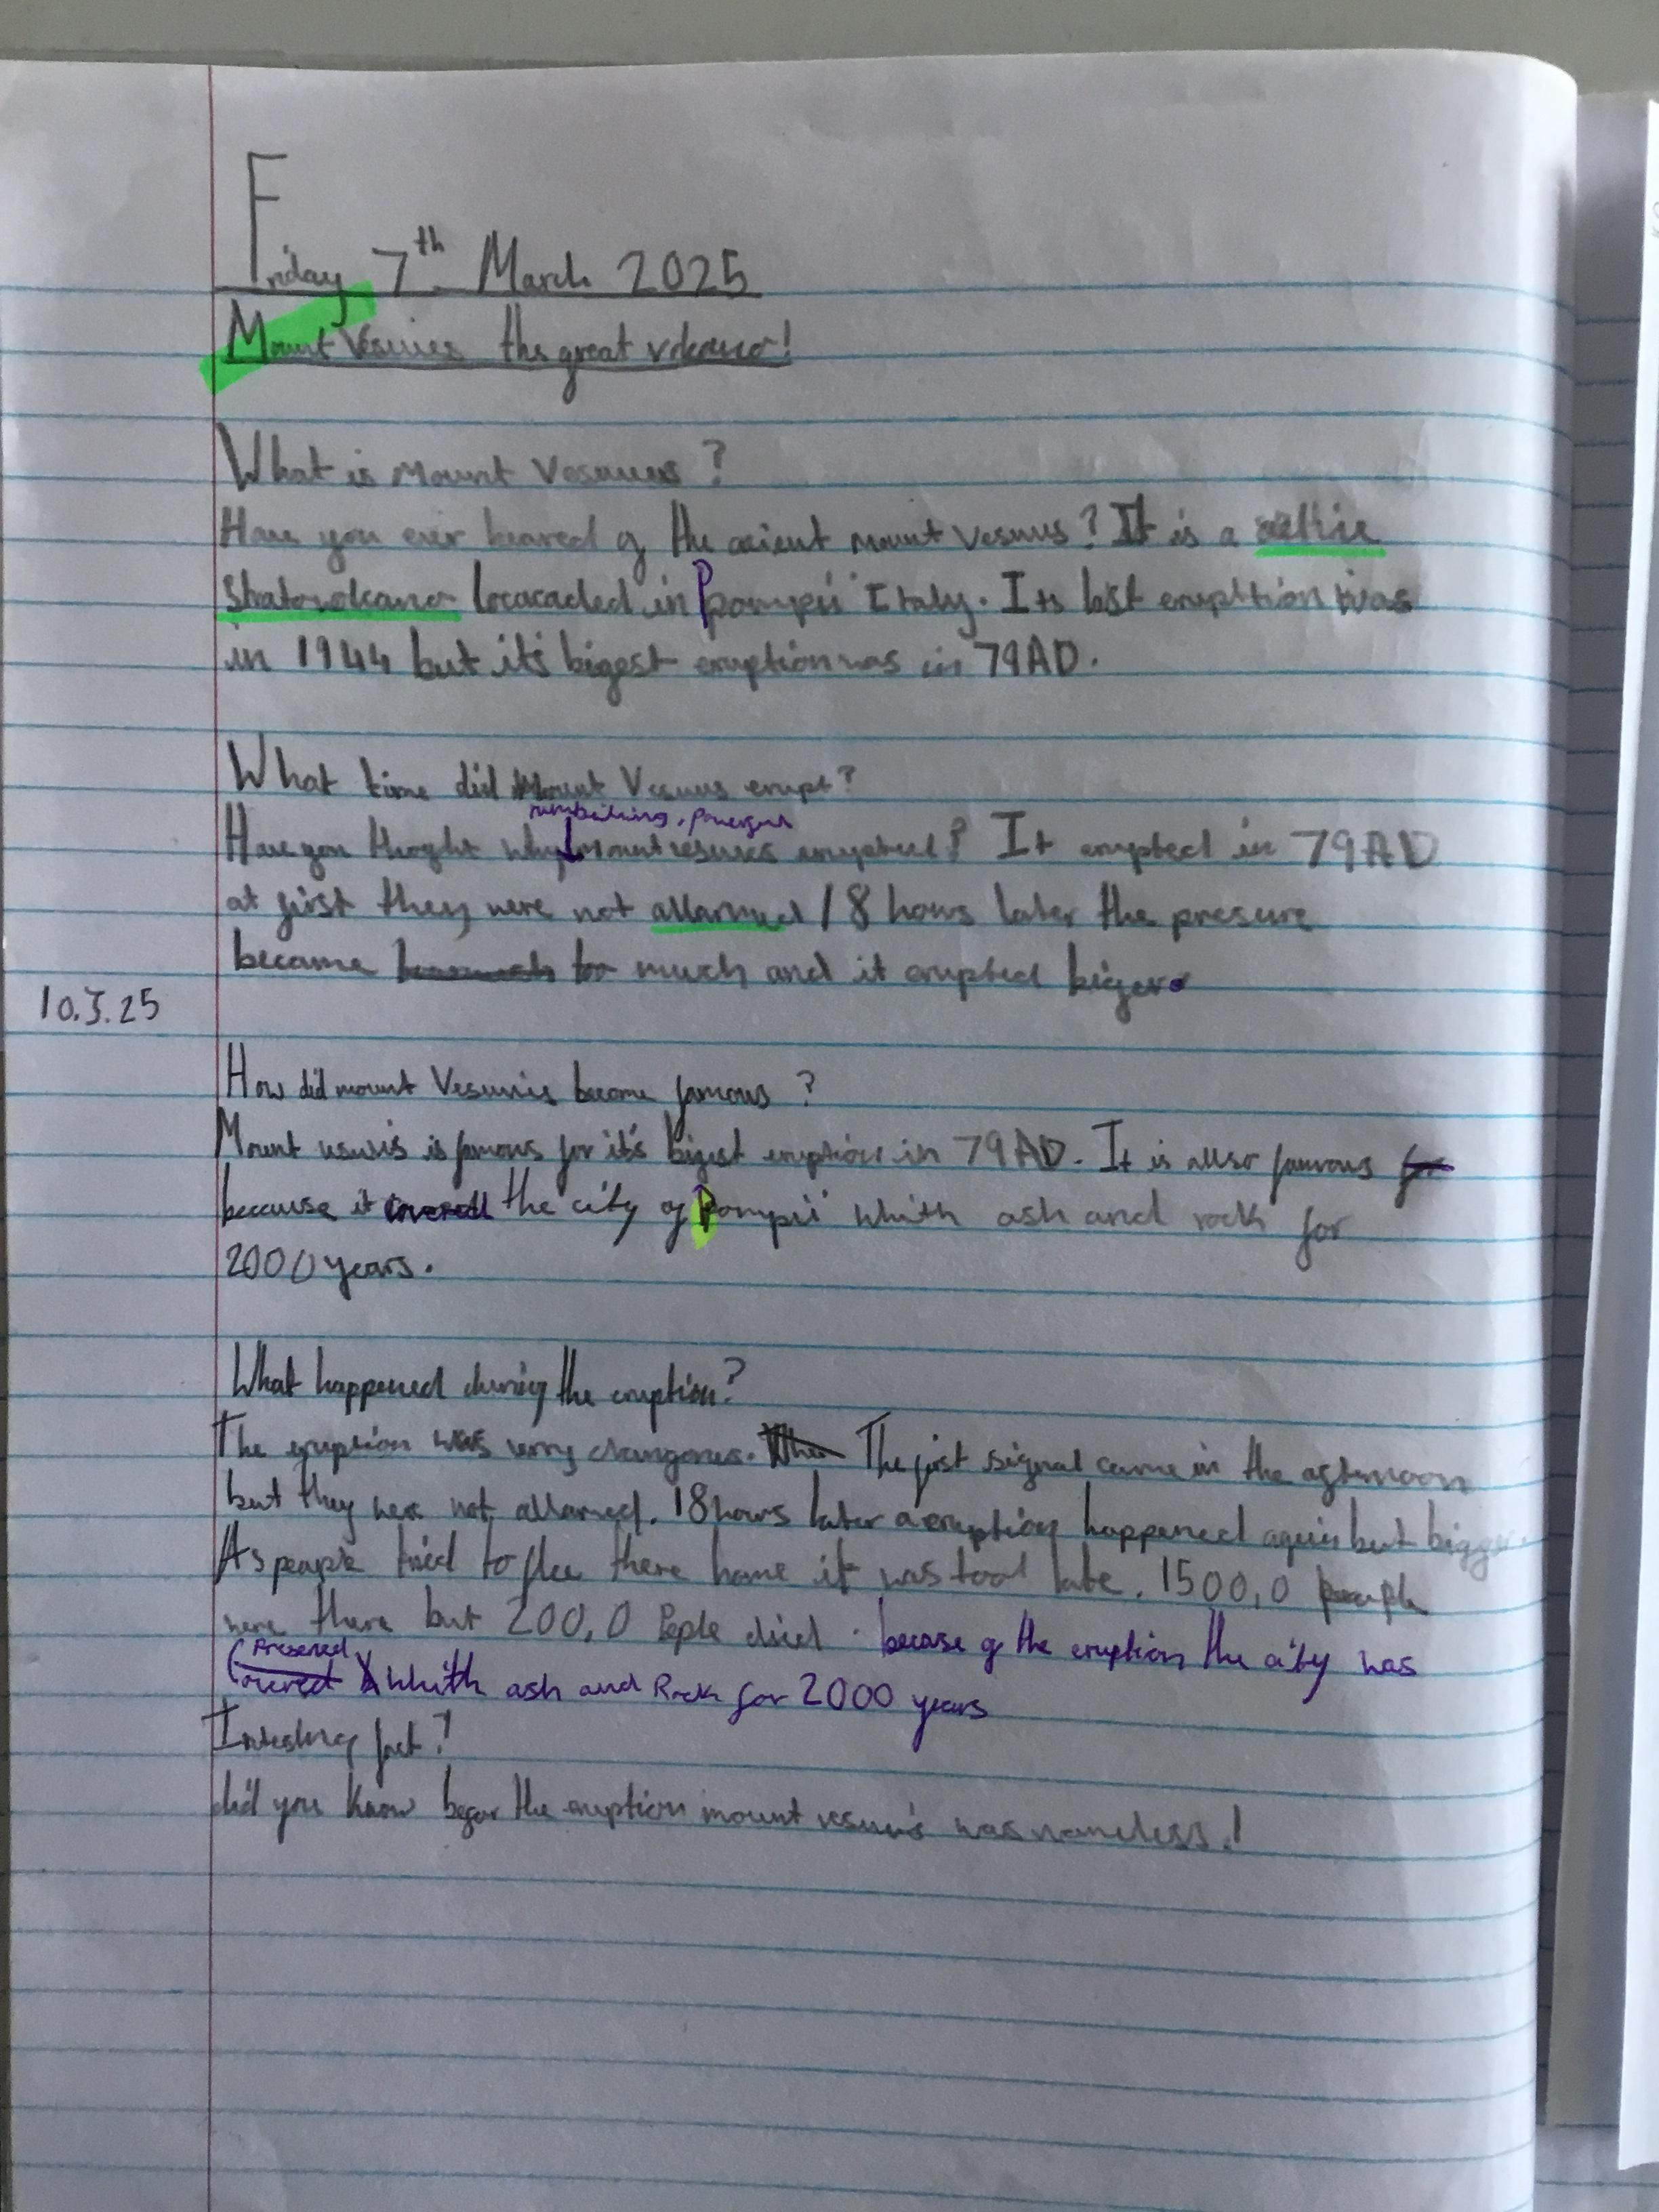 Friday 7th March 2025
Mount Vesuvies the great volcano!
What is Mount Vesuvius?
Have you ever heared of the acient mount vesuvus? It is a active
stratovolcano lococaded in Pompeii Italy. Its last erupttion was
in 1944 but it's bigest eruption was in 79AD.
What time did Mount Vesuvus erupt?
rumbaling, powerful
Have you thoght why mount vesuvius erupted? It erupted in 79AD
at first they were not allarmed 18 hours later the presure
became too much and it erupted biger.
10.3.25
How did mount Vesuvis become famous?
Mount vesuvis is famous for it's bigest eruption in 79AD. It is allso famous for
because it covered the city of Pompii whith ash and rock for
2000 years.
What happened during the eruption?
The eruption was very dangorus. When The first signal came in the afternoon
but they were not allarmed. 18 hours later a eruption happened again but bigger.
As people tried to flee there home it was tool late. 1500,0 people
were there but 200,0 Peple died. becase of the eruption the city was
Preserved
covered whith ash and Rock for 2000 years
Intresting fact!
did you know befor the eruption mount vesuvis was nameless!